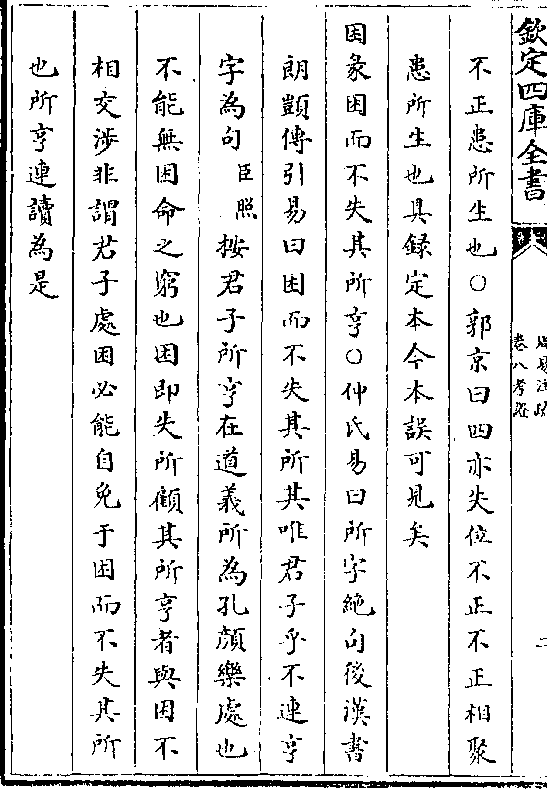 欽定四庫全書
周易注疏
卷八考證
二
不正患所生也○郭京曰四亦失位不正不正相聚
患所生也具録定本今本誤可見矣
困彖困而不失其所亨○仲氏易曰所字絶句後漢書
朗顗傳引易曰困而不失其所其唯君子乎不連亨
字為句臣照按君子所亨在道義所為孔顔樂處也
不能無困命之窮也困即失所顧其所亨者與困不
相交渉非謂君子處困必能自免于困而不失其所
也所亨連讀為是